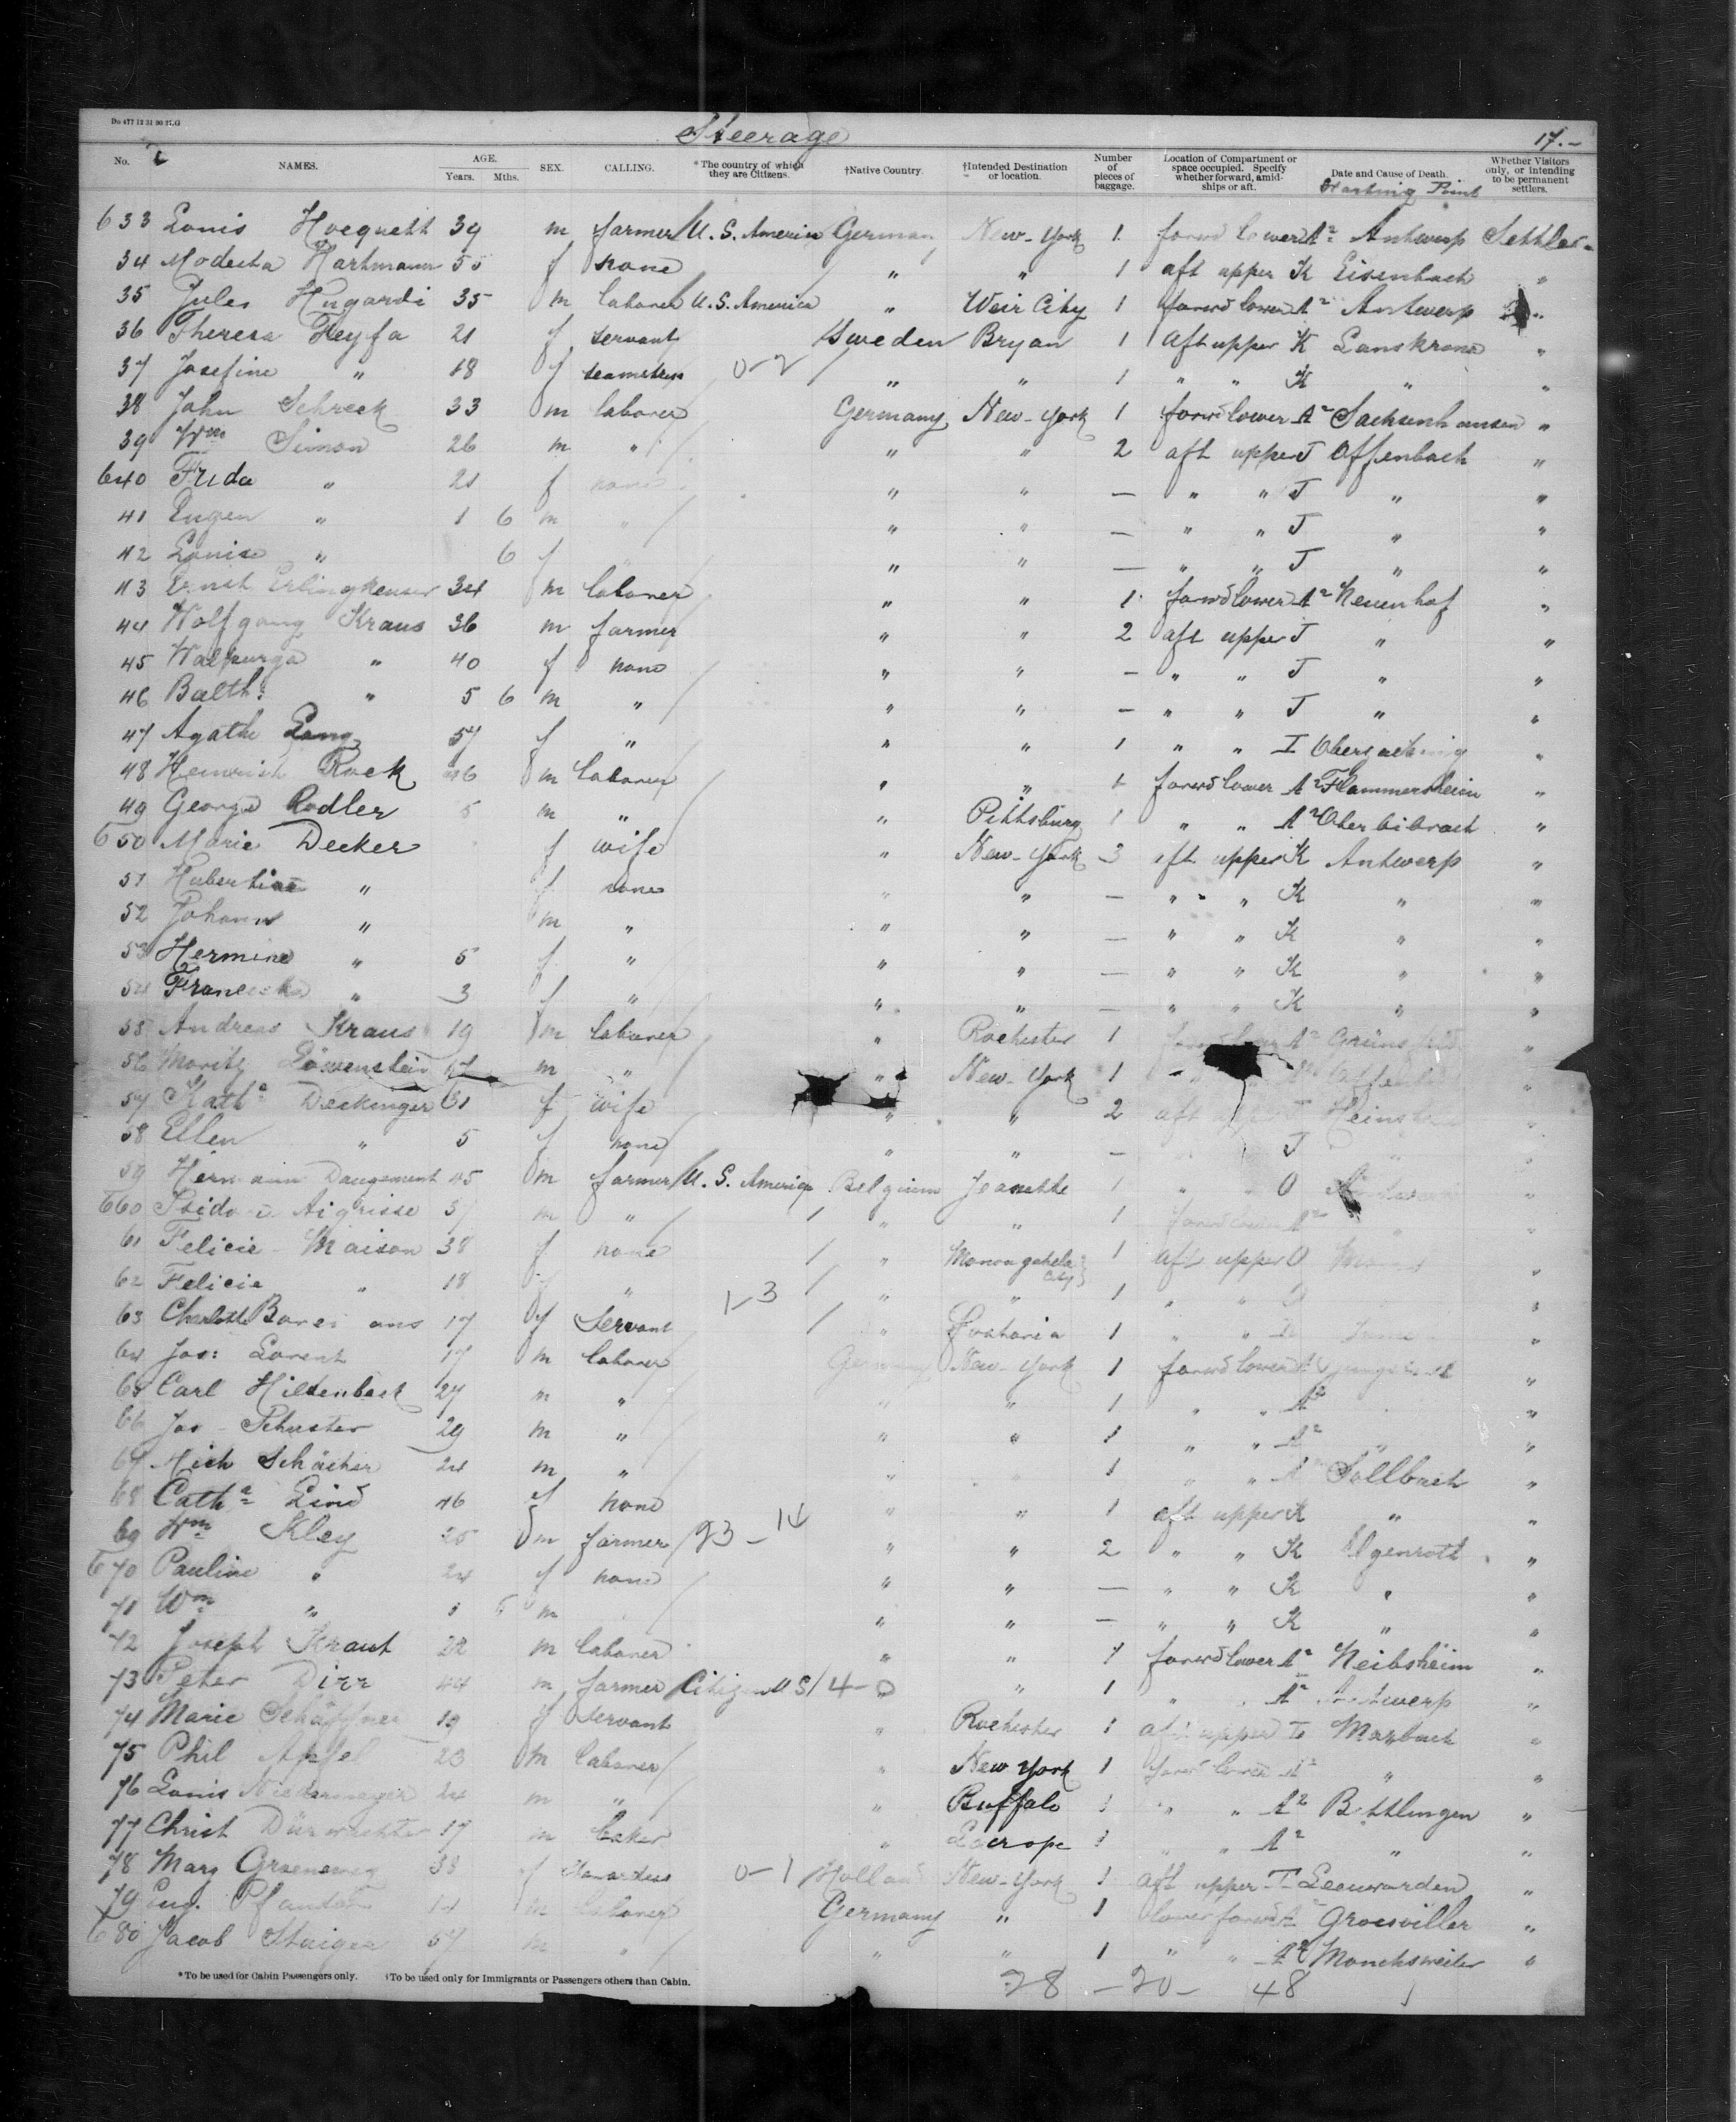 Do 477 12 31 90 27.G
Steerage
17.-
No. NAMES. AGE. Years. Mths. SEX. CALLING. *The country of which they are Citizens. †Native Country. †Intended Destination or location. Number of pieces of baggage. Location of Compartment or space occupied. Specify whether forward, amid-ships or aft. Date and Cause of Death. Whether Visitors only, or intending to be permanent settlers.
Starting Point
633 Louis Hocquett 39 m farmer U. S. America German New-York 1 forwd lower A2 Antwerp Settler
34 Modesta Hartmann 55 f none " " 1 aft upper K Eisenbach "
35 Jules Hugardi 35 m laborer U. S. America " Weir City 1 forwd lower A2 Antwerp "
36 Theresa Feyfa 21 f servant Sweden Bryan 1 Aft upper K Lanskrona "
37 Josefine " 18 f seamstress 0-2 " " 1 " " K " "
38 John Schreck 33 m laborer Germany New-York 1 forwd lower A2 Sachsenhausen "
39 Wm Simon 26 m " " " 2 aft upper J Offenbach "
640 Frida " 21 f none " " — " " J " "
41 Eugen " 1 6 m " " " — " " J " "
42 Louise " 6 f " " — " " J " "
43 Ernst 34 m laborer " " 1 forwd lower A2 Neuenhof "
44 Wolfgang Kraus 36 m farmer " " 2 aft upper J " "
45 Walpurga " 40 f none " " — " " J " "
46 Balth: " 5 6 m " " " — " " J " "
47 Agathe Lang 57 f " " " 1 " " I "
48 Heinrich Rock m laborer " " 1 forwd lower A2 Flammersheim "
49 George Rodler m " " Pittsburg 1 " " A2 "
650 Marie Decker f wife " New-York 3 aft upper K Antwerp "
51 Hubertine " f none " " — " " K " "
52 Johann " m " " " — " " K " "
53 Hermine " 5 f " " " — " " K " "
54 Franciska " 3 f " " " — " " K " "
55 Andreas Kraus 19 m laborer " Rochester 1 forwd lower A2 "
56 Moritz Löwenstein 17 m " " New-York 1
57 Katha Deckinger f wife " " 2 aft
58 Ellen " 5 f none " " — J
59 Daugement 45 m farmer U. S. America Belgium Jeanette 1 " " O
660 Aigrisse m " " " 1 forwd lower A2
61 Felicie Maison 38 f none " Monongahela City 1 aft upper O "
62 Felicie " 18 f " 1-3 " " 1 " " O "
63 Charlotte 17 f Servant " 1 " " "
64 Jos: Lorent 17 m laborer Germany New-York 1 forwd lower A2 "
65 Carl Hiltenbach 27 m " " " 1 " " A2 "
66 Jos Schuster 29 m " " " 1 " " A2 " "
67 Mich Schächer 24 m " " " 1 " " A2 Sollbach "
68 Catha Lind 46 f none " " 1 aft upper K " "
69 Wm Kley 25 m farmer 23-14 " " 2 " " K Ilgenroth "
670 Pauline " 24 f none " " — " " K " "
71 Wm " 1 m " " — " " K " "
72 Joseph Kraut 22 m laborer " " 1 forwd lower A2 Neibsheim "
73 Peter Dirr 44 m farmer Citizen U S 4-0 " " 1 " " A2 Antwerp "
74 Marie Schäffner 19 f Servant " Rochester 1 aft upper Marbach "
75 Phil Apfel 23 m laborer " New York 1 forwd lower A2 " "
76 Louis Niedermeyer 24 m " " Buffalo 1 " " A2 "
77 Christ Dürwächter 17 m baker " Lacrope 1 " " A2 " "
78 Mary Groeneweg 38 f 0-1 Holland New-York 1 aft upper T Leeuwarden "
79 Eug. 14 m laborer Germany " 1 lower forwd A2 "
680 Jacob Staiger 57 m " " " 1 " " A2 Monchsweiler "
*To be used for Cabin Passengers only. †To be used only for Immigrants or Passengers others than Cabin.
28 - 20 - 48